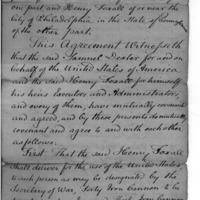 one part and Henry Foxall of or near the
City of Philadelphia in the State of
of the other Part.
This Agreement Witnesseth
that the said Samuel Dexter for and on
behalf of the United States of America
and the said Henry Foxall for himself
his heirs Executors and Administrators
and every of them, have mutually covenanted
and agreed, and by these presents do mutually
covenant and agree to and with each other
as follows.
First. That the said Henry Foxall
shall deliver for the use of the United States
to such person as may be designated by the
Secretary of War, Forty Iron Cannon to be